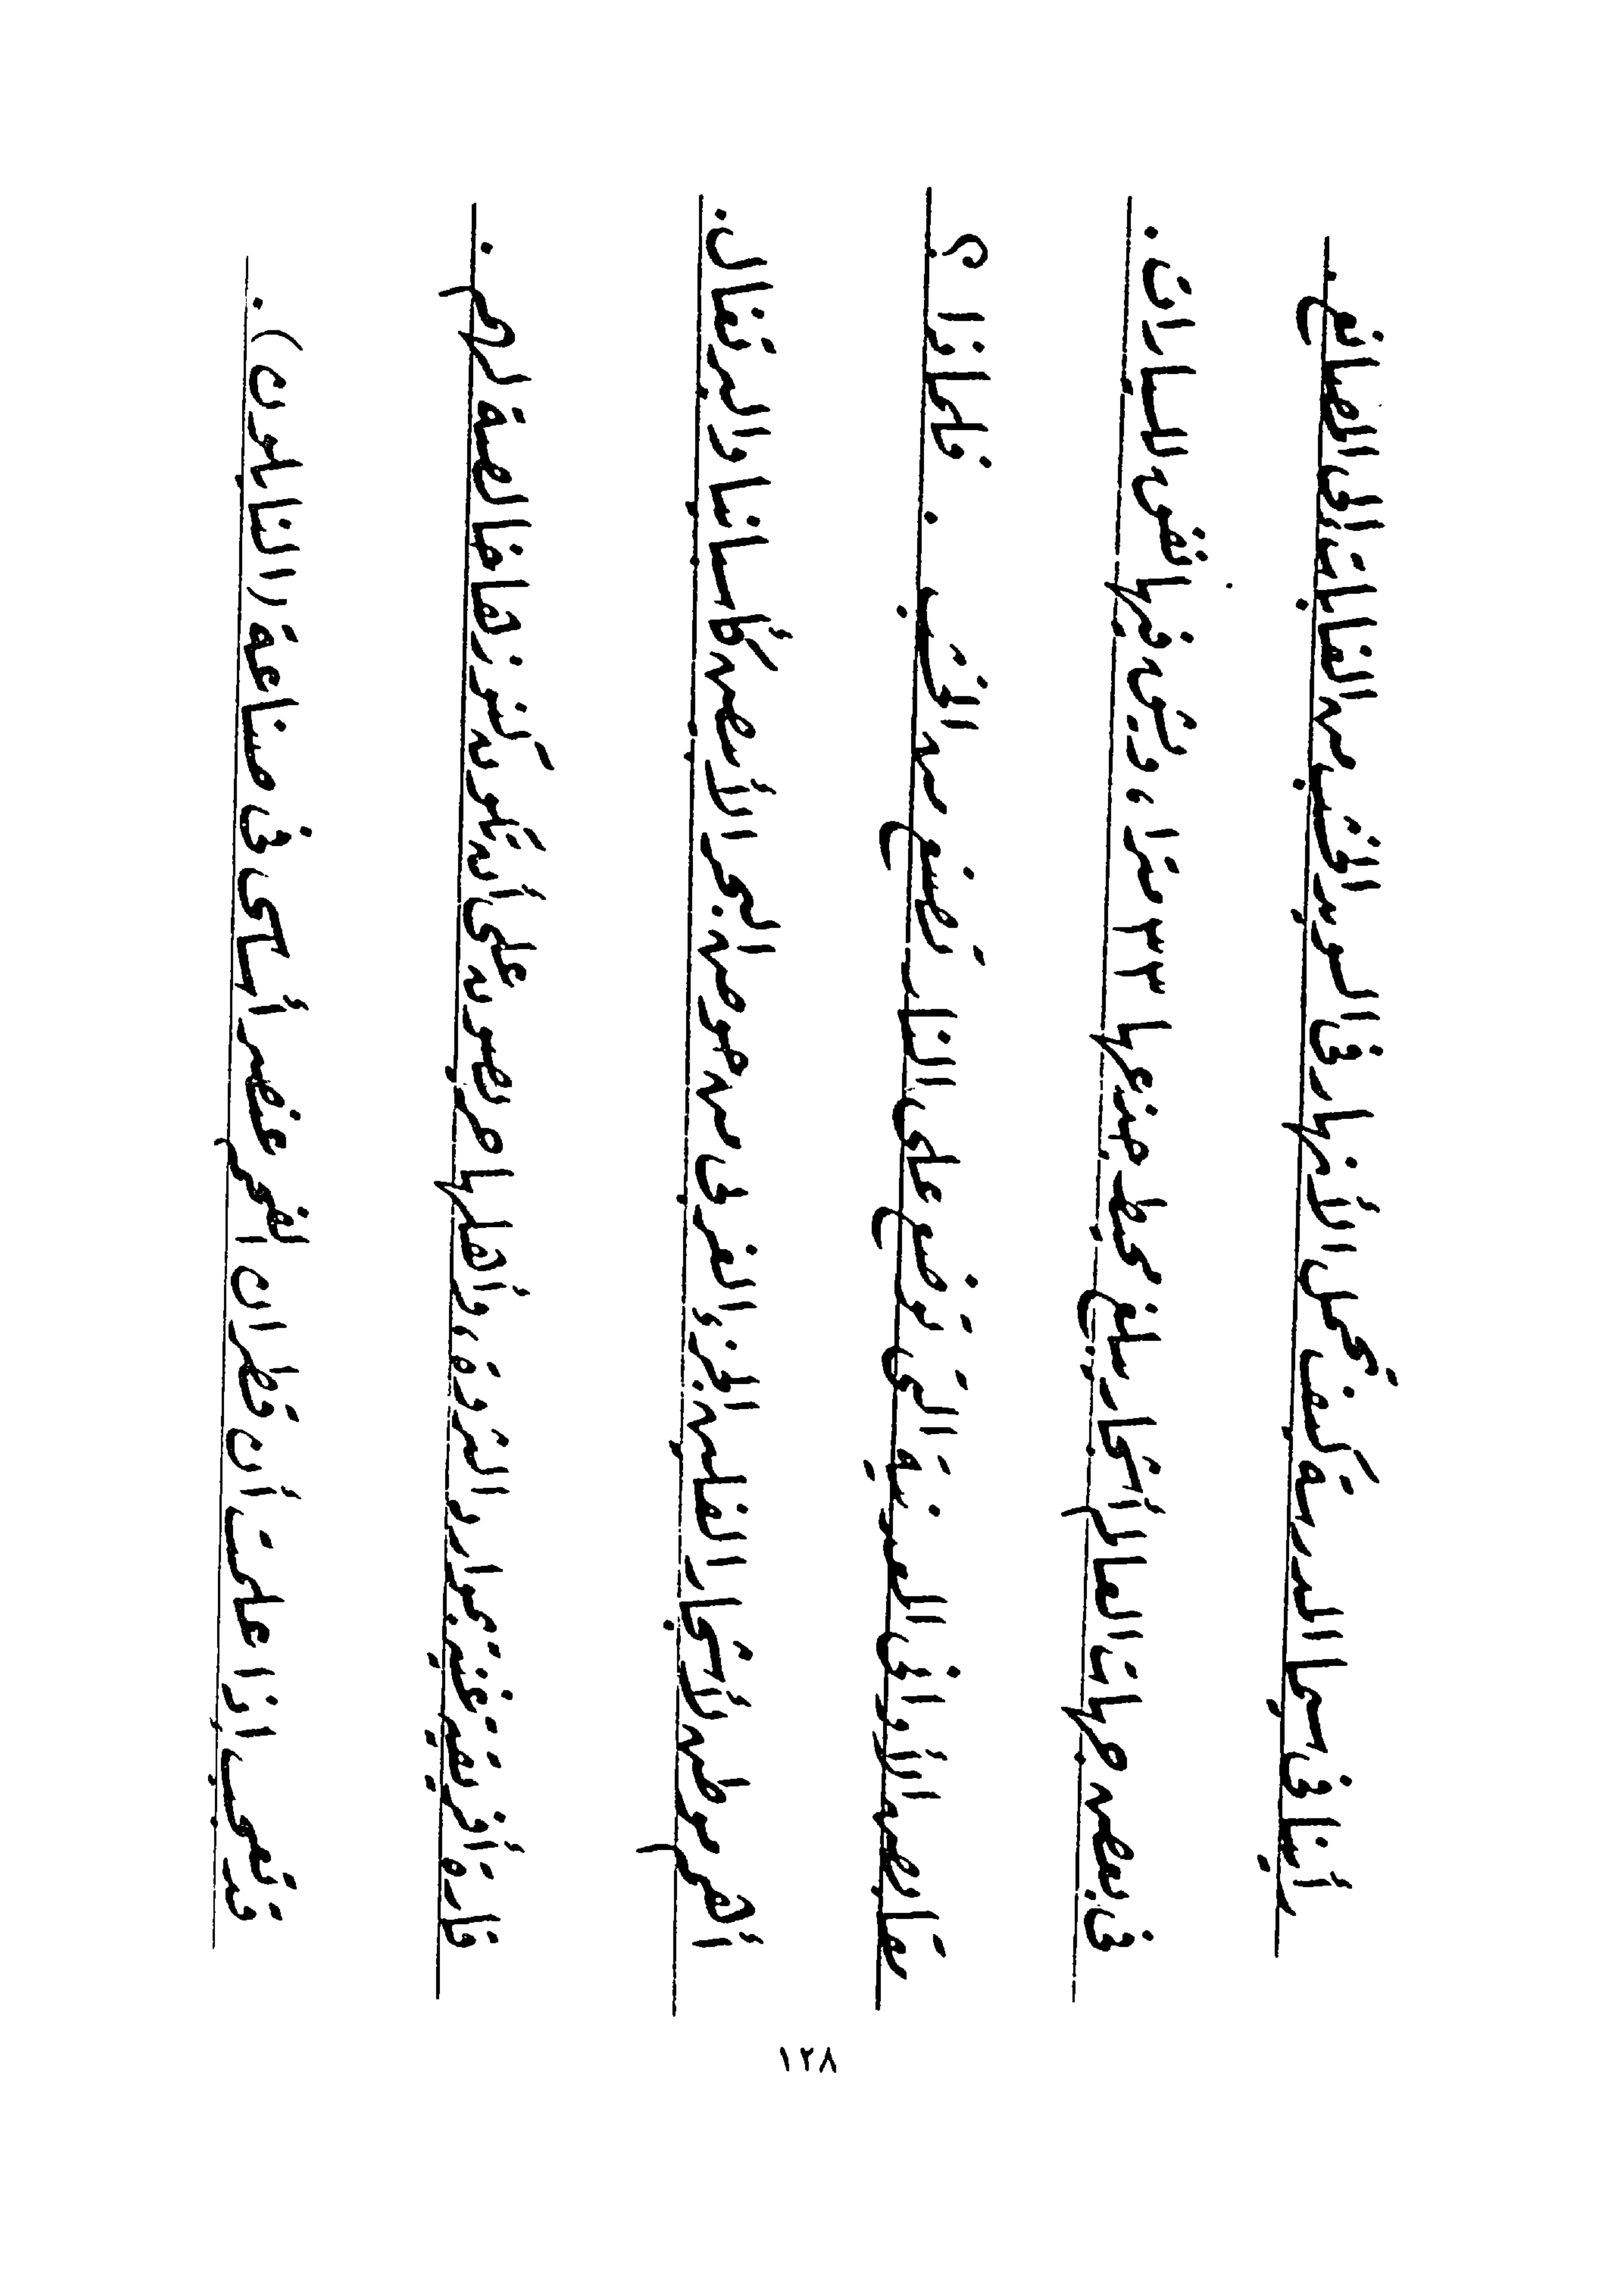 رأينا فى سينما المدرسة كيف تحمل الأنهار فى السويد الخشب من الغابات إلى المصانع .
فى بعض جهات العالم أشجار يبلغ محيط جذعها ٣٣ مترا ، وشق فيها نفق للسيارات .
مقابض الأوانى المعدنية التى توضع على النار تصنع من الخشب . فلماذا ؟
أهم موطن لأشجار الفلين الجزء الغربى من حوض البحر الأبيض كأسبانيا والبرتغال .
قارة أفريقية غنية بموارد الثروة ، وأهلها حريصون على أن تكون كنوزها خالصة لهم .
قد تعجب إذا علمت أن قطران الفحم عنصر أساسى فى صناعة ( النايلون ) .
١٢٨